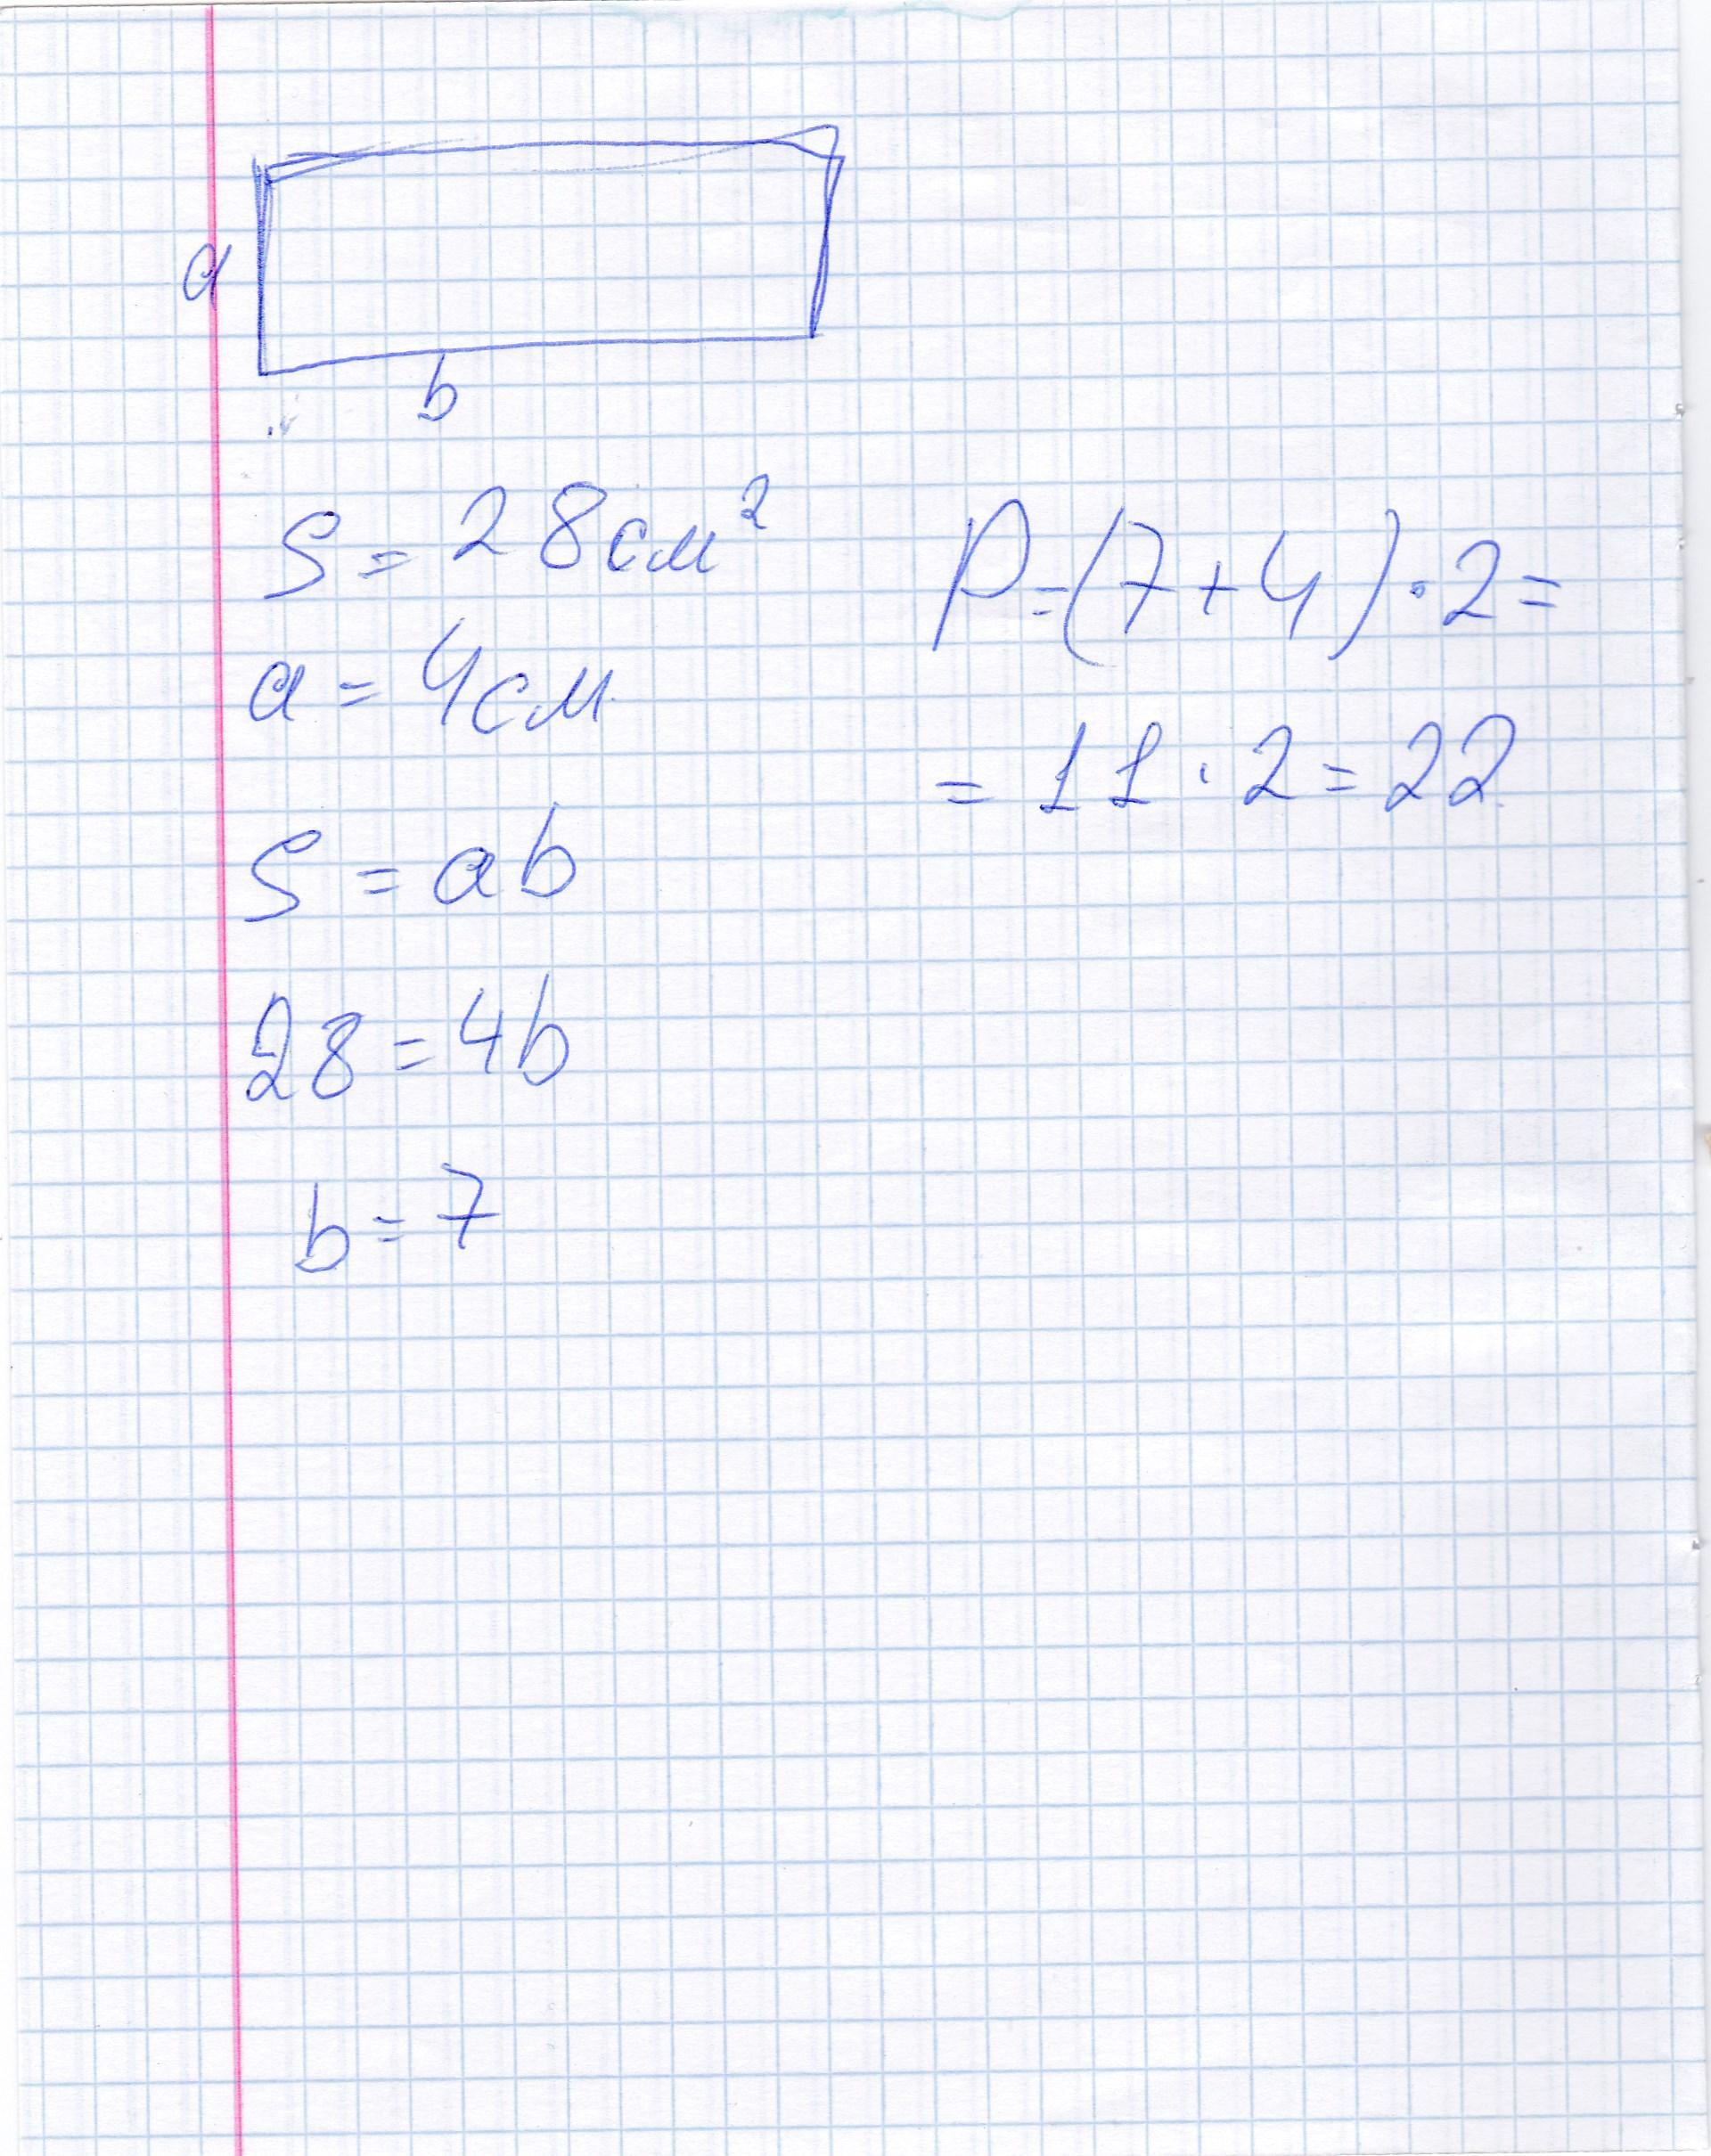 a
b
S = 28 см²
a = 4 см
S = ab
28 = 4b
b = 7
P = (7 + 4) · 2 =
= 11 · 2 = 22